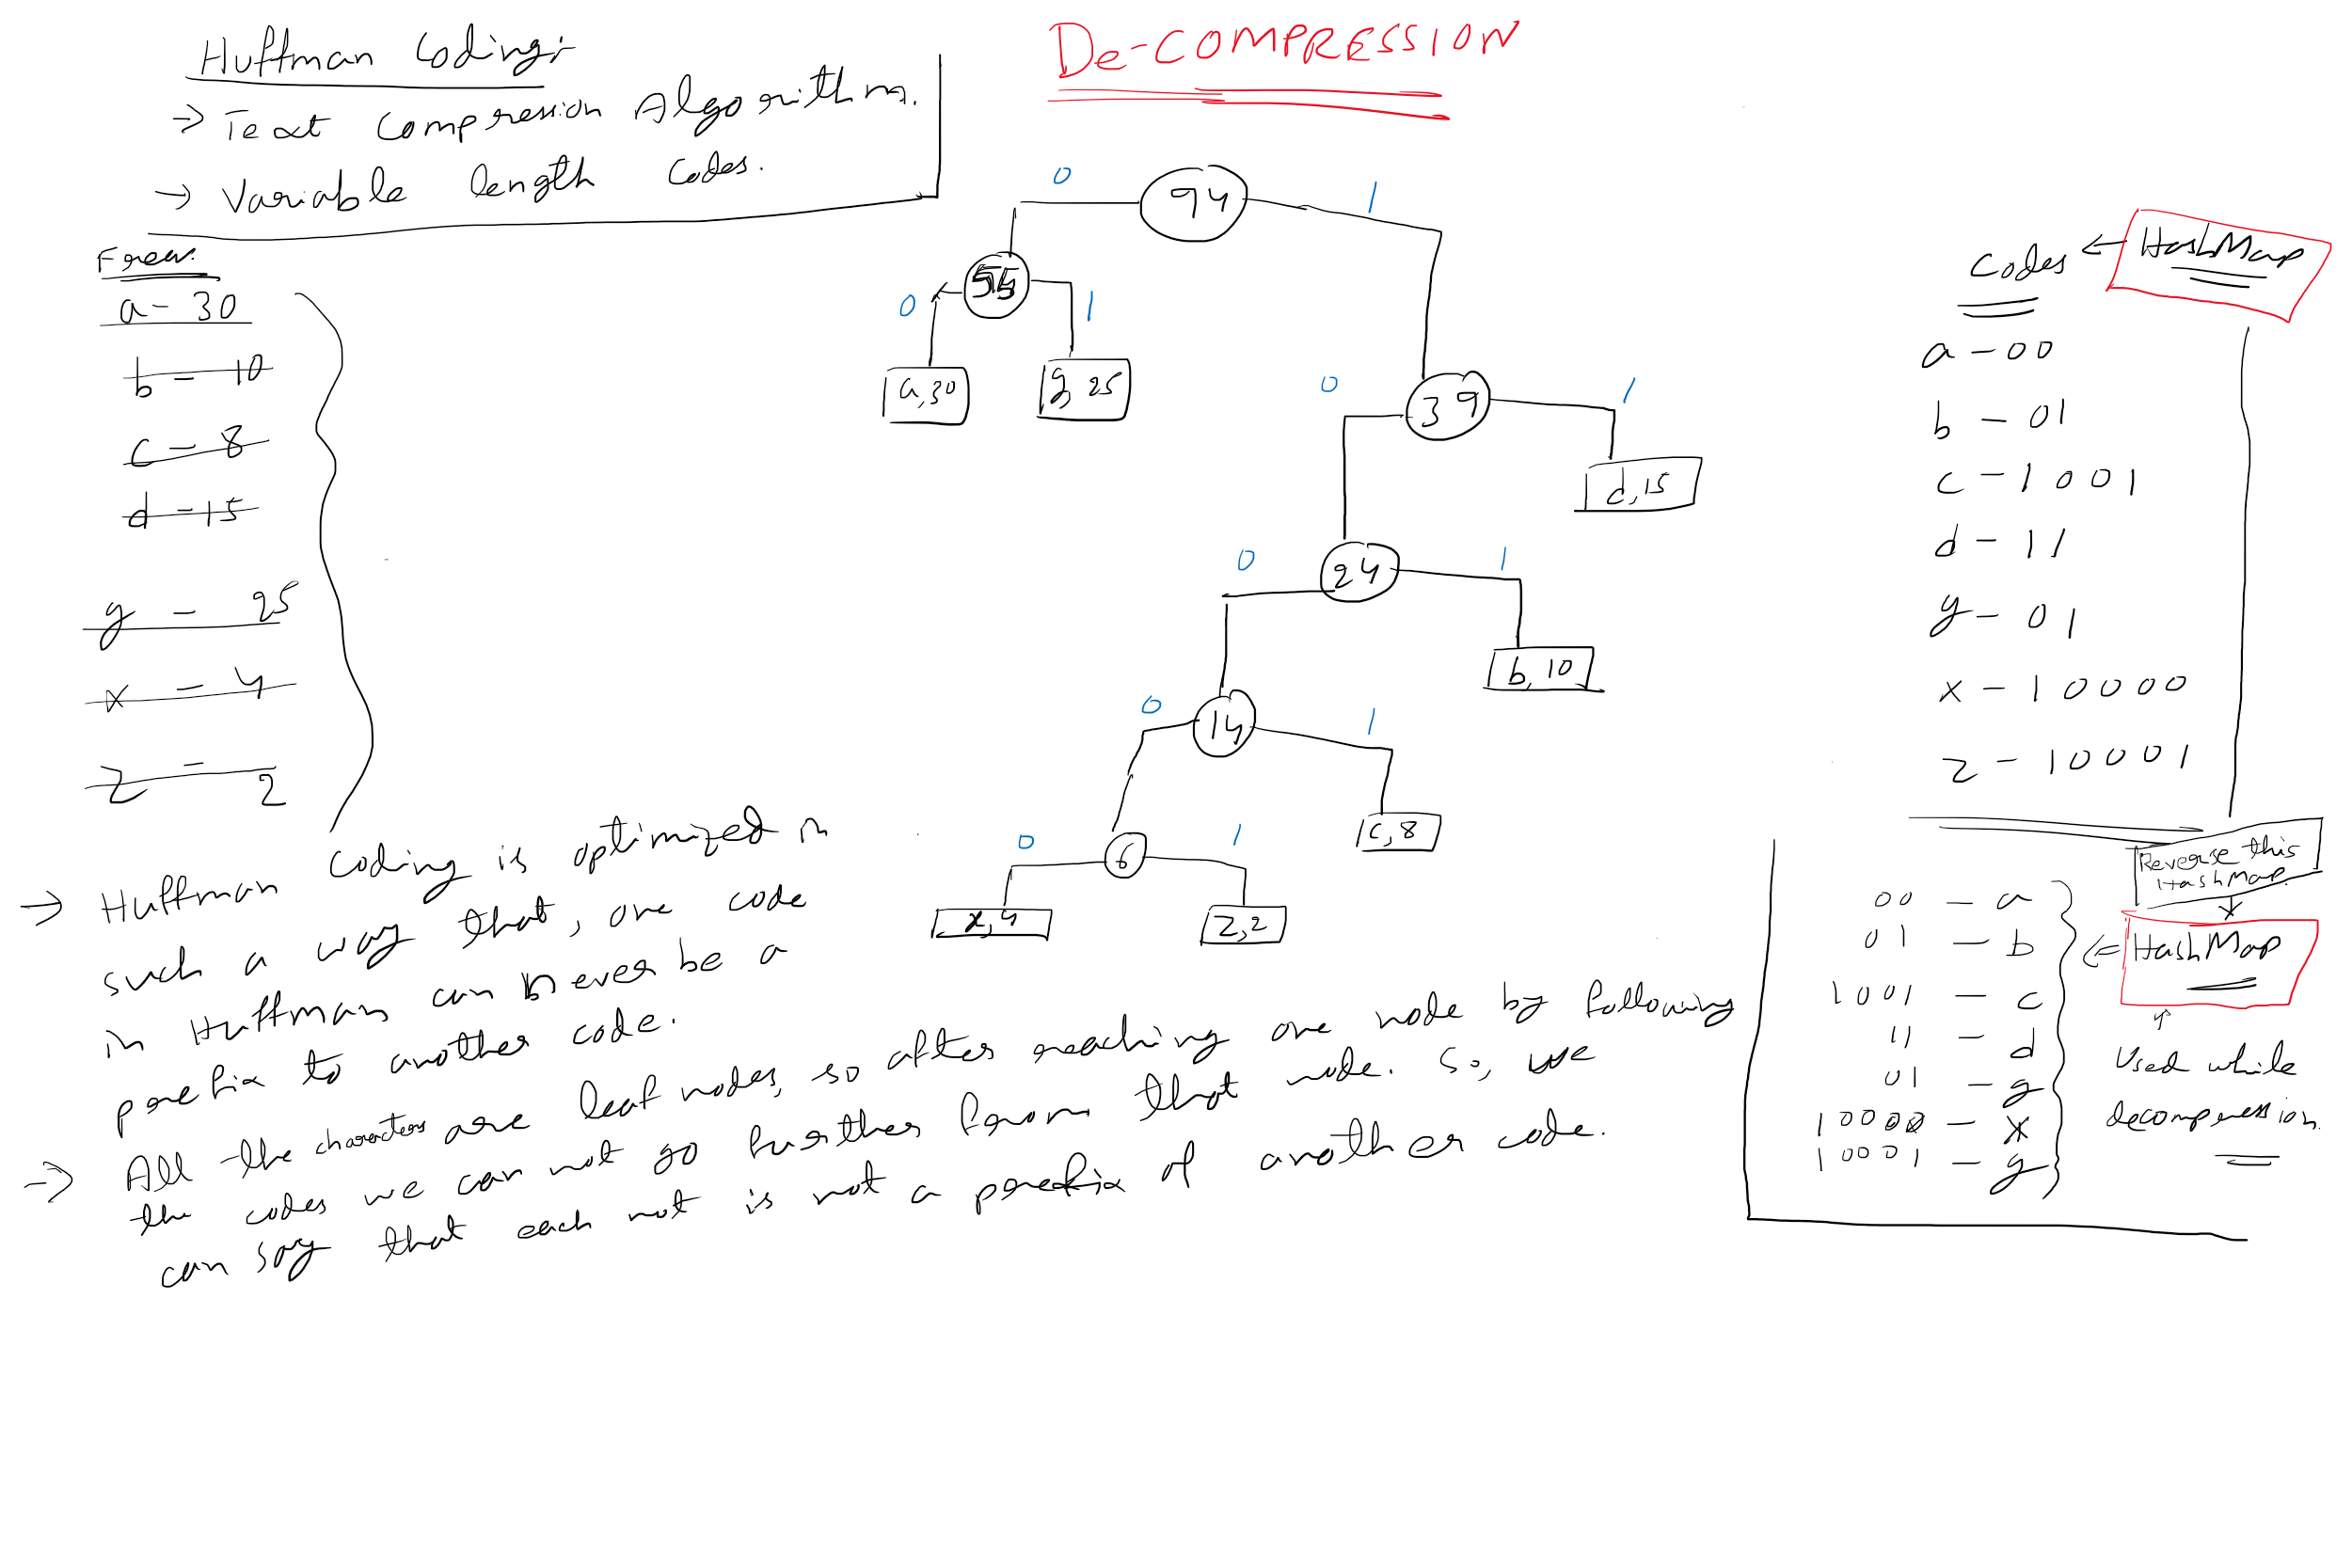 Huffman Coding:
→ Text Compression Algorithm.
→ Variable length Codes.
De-COMPRESSION
Freq.
a - 30
b - 10
c - 8
d - 15
g - 25
x - 4
z - 2
94
0
1
55
0
1
a,30
g,25
39
0
1
d,15
24
0
1
b,10
14
0
1
c,8
6
0
1
x,4
z,2
Codes ← HashMap
a - 00
b - 01
c - 1001
d - 11
g - 01
x - 10000
z - 10001
Reverse this
HashMap
00 - a
01 - b
1001 - c
11 - d
01 - g
10000 - x
10001 - g
⇐ HashMap
↑
Used while
decompression.
→ Huffman Coding is optimized in
such a way that, one code
in Huffman can never be a
prefix to another code.
→ All the characters are leaf nodes, so after reaching one node by following
the codes we can not go further from that node. So, we
can say that each not is not a prefix of another code.